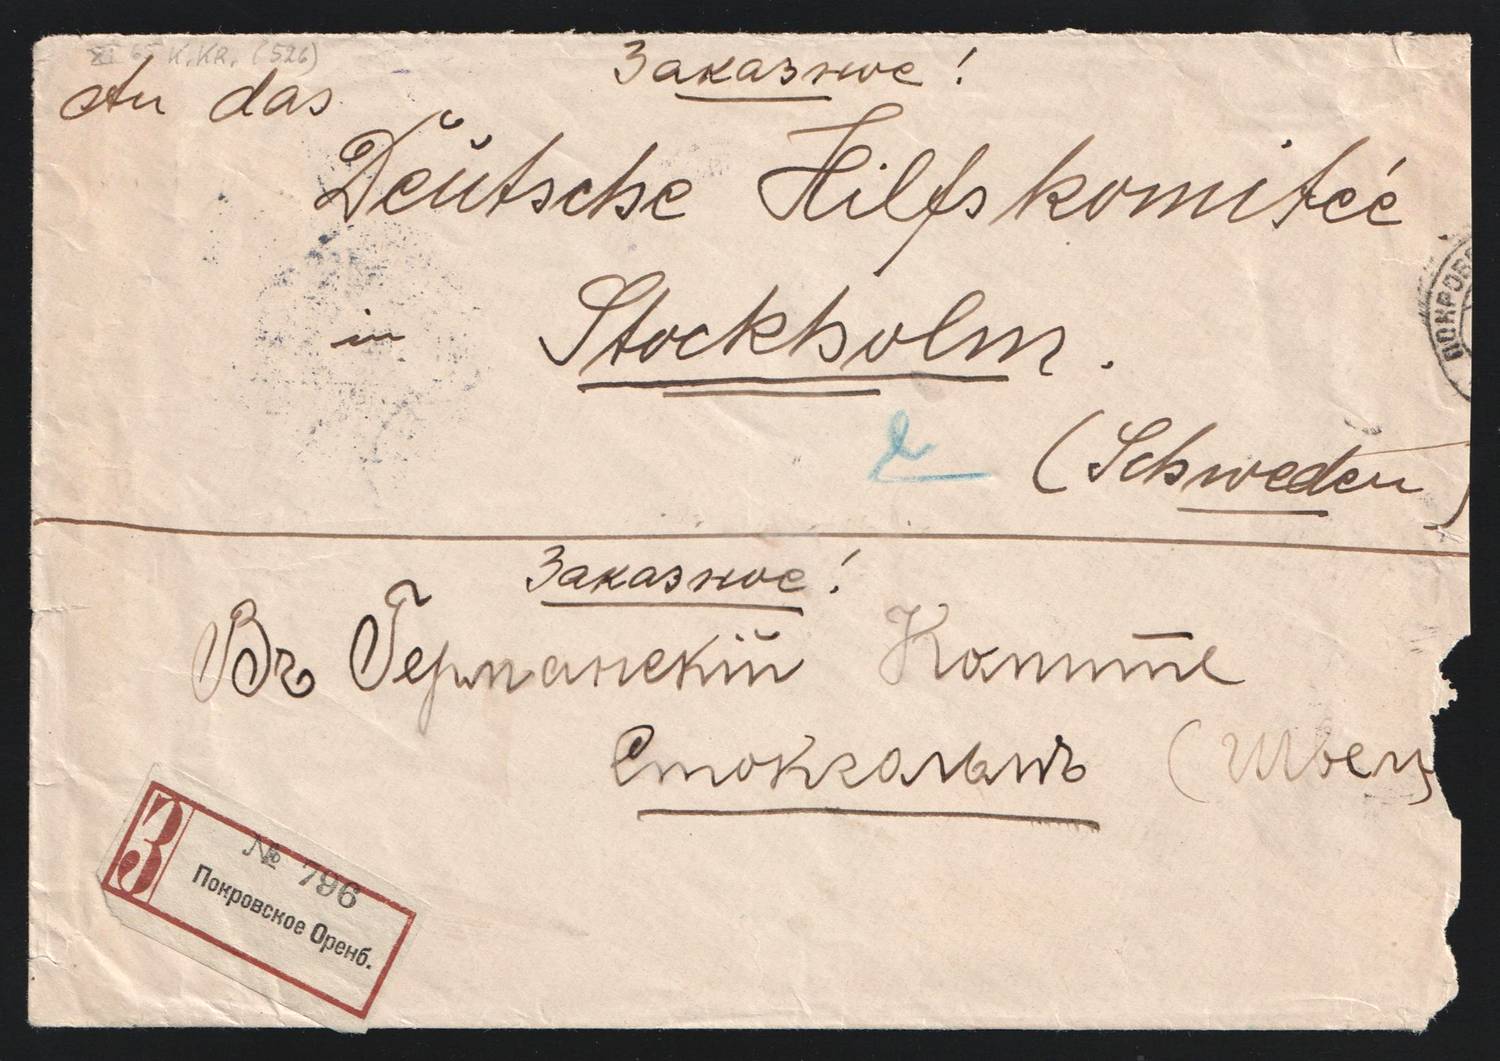 K.KR. (526)
Заказное!
An das
Deutsche Hilfskomiteé
in Stockholm.
(Schweden)
Заказное!
Въ Германскій Комите
Стокгольмъ (Швец
З
№ 796
Покровское Оренб.
ПОКРОВС